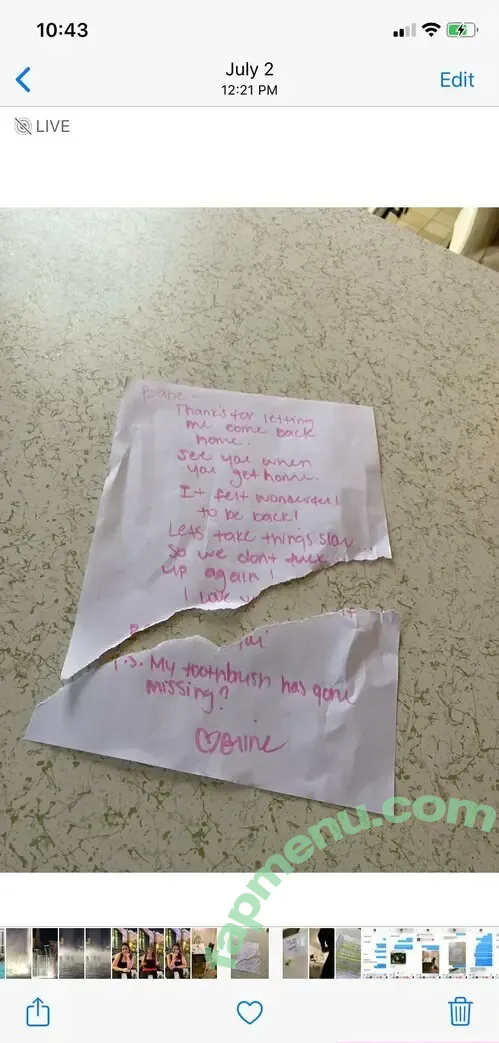 10:43
July 2
12:21 PM
Edit
LIVE
Babe-
Thanks for letting
me come back
home.
See you when
you get home.
It felt wonderful
to be back!
Lets take things slow
So we dont fuck
up again!
I love
P.S. My toothbush has gone
missing?
fapmenu.com